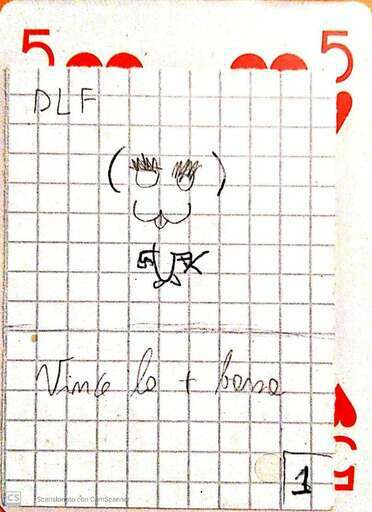 5 5
DLF
Vince la + bassa
1
5
CS Scansionato con CamScanner